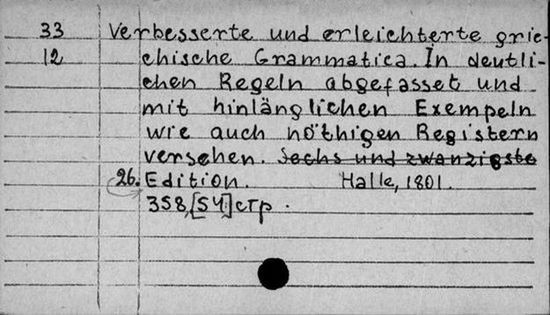 33 Verbesserte und erleichterte grie-
12 chische Grammatica. In deutli-
chen Regeln abgefasset und
mit hinlänglichen Exempeln
wie auch nöthigen Registern
versehen. Sechs und zwanzigste
26. Edition. Halle, 1801.
358, [54] стр.